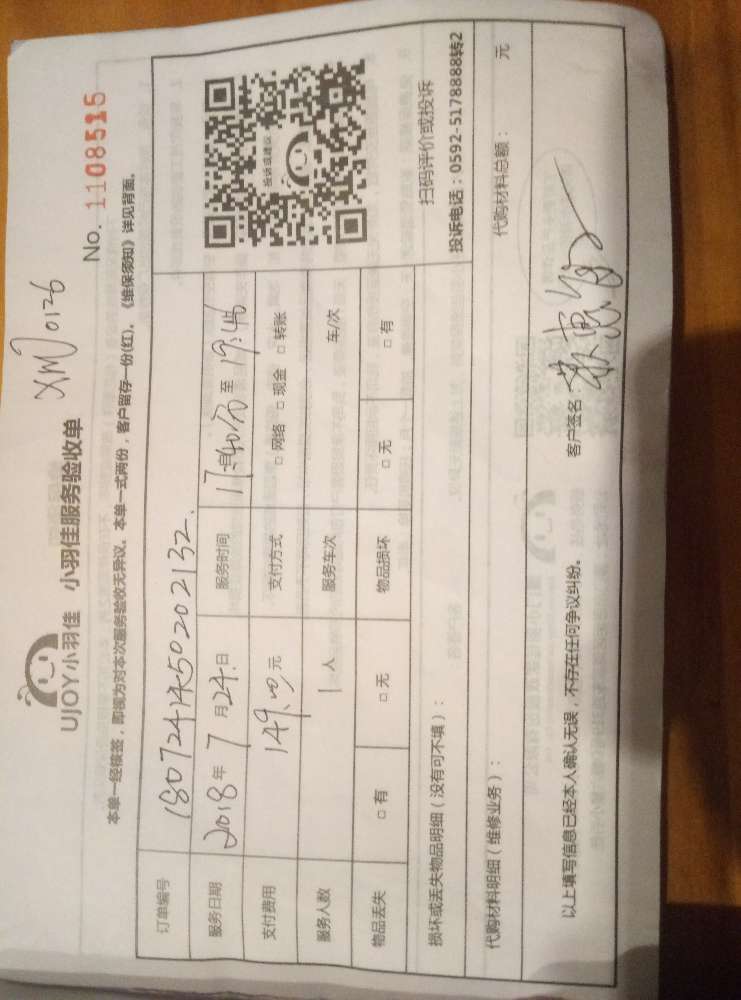 XM 0126
UJOY小羽佳 小羽佳服务验收单
No. 1108515
本单一经核签，即视为对本次服务验收无异议。本单一式两份，客户留存一份(红)。《维保须知》详见背面。
订单编号
服务日期 2018年 7月 24日 服务时间 17:40分 至 19:46
支付费用 149.00元 支付方式 □ 网络 □ 现金 □ 转账
服务人数 1人 服务车次 车/次
物品丢失 □ 有 □ 无 物品损坏 □ 无 □ 有
投诉或建议
扫码评价或投诉
投诉电话：0592-5178888转2
损坏或丢失物品明细（没有可不填）：
代购材料明细（维修业务）： 代购材料总额： 元
以上填写信息已经本人确认无误，不存在任何争议纠纷。 客户签名：